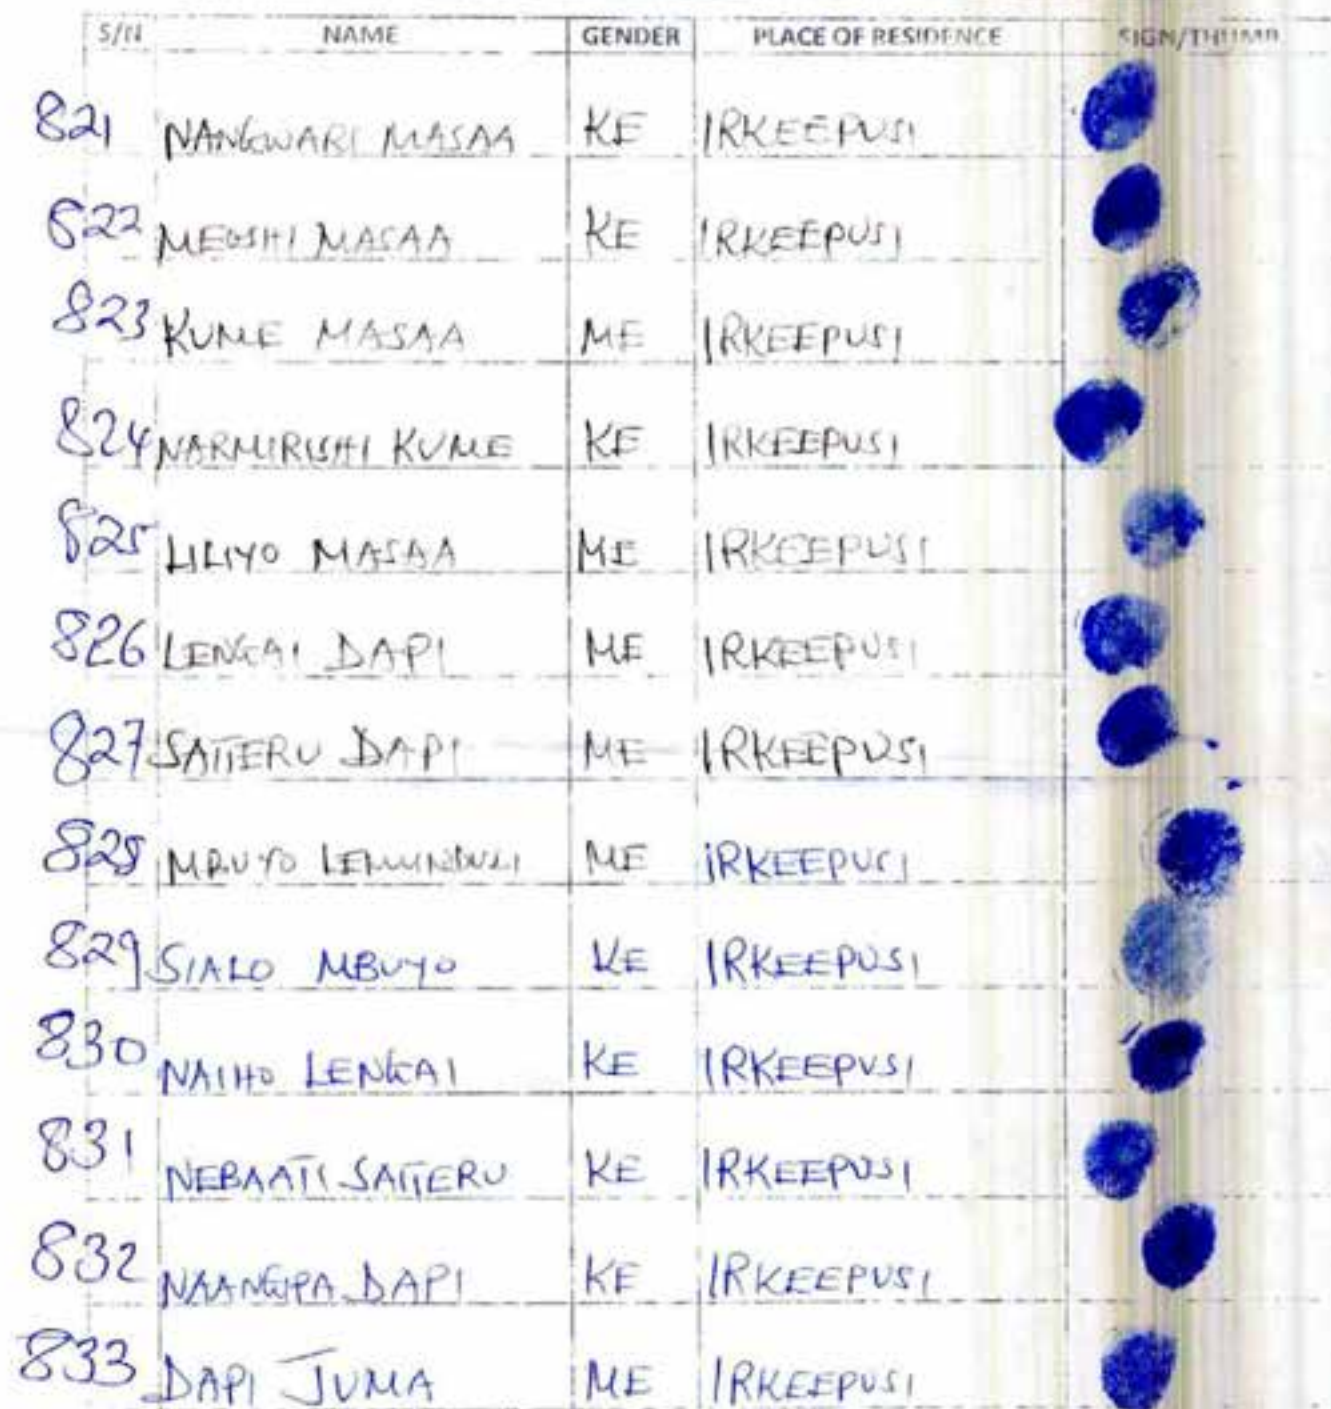 S/N NAME GENDER PLACE OF RESIDENCE SIGN/THUMB
821 NANGWARI MASAA KE IRKEEPUSI
822 MEOSHI MASAA KE IRKEEPUSI
823 KUME MASAA ME IRKEEPUSI
824 NARMIRISHI KUME KE IRKEEPUSI
825 LILIYO MASAA ME IRKEEPUSI
826 LENGAI DAPI ME IRKEEPUSI
827 SAITERU DAPI ME IRKEEPUSI
828 MBUYO ME IRKEEPUSI
829 SIALO MBUYO KE IRKEEPUSI
830 NAIHO LENGAI KE IRKEEPUSI
831 NEBAATI SAITERU KE IRKEEPUSI
832 DAPI KE IRKEEPUSI
833 DAPI JUMA ME IRKEEPUSI